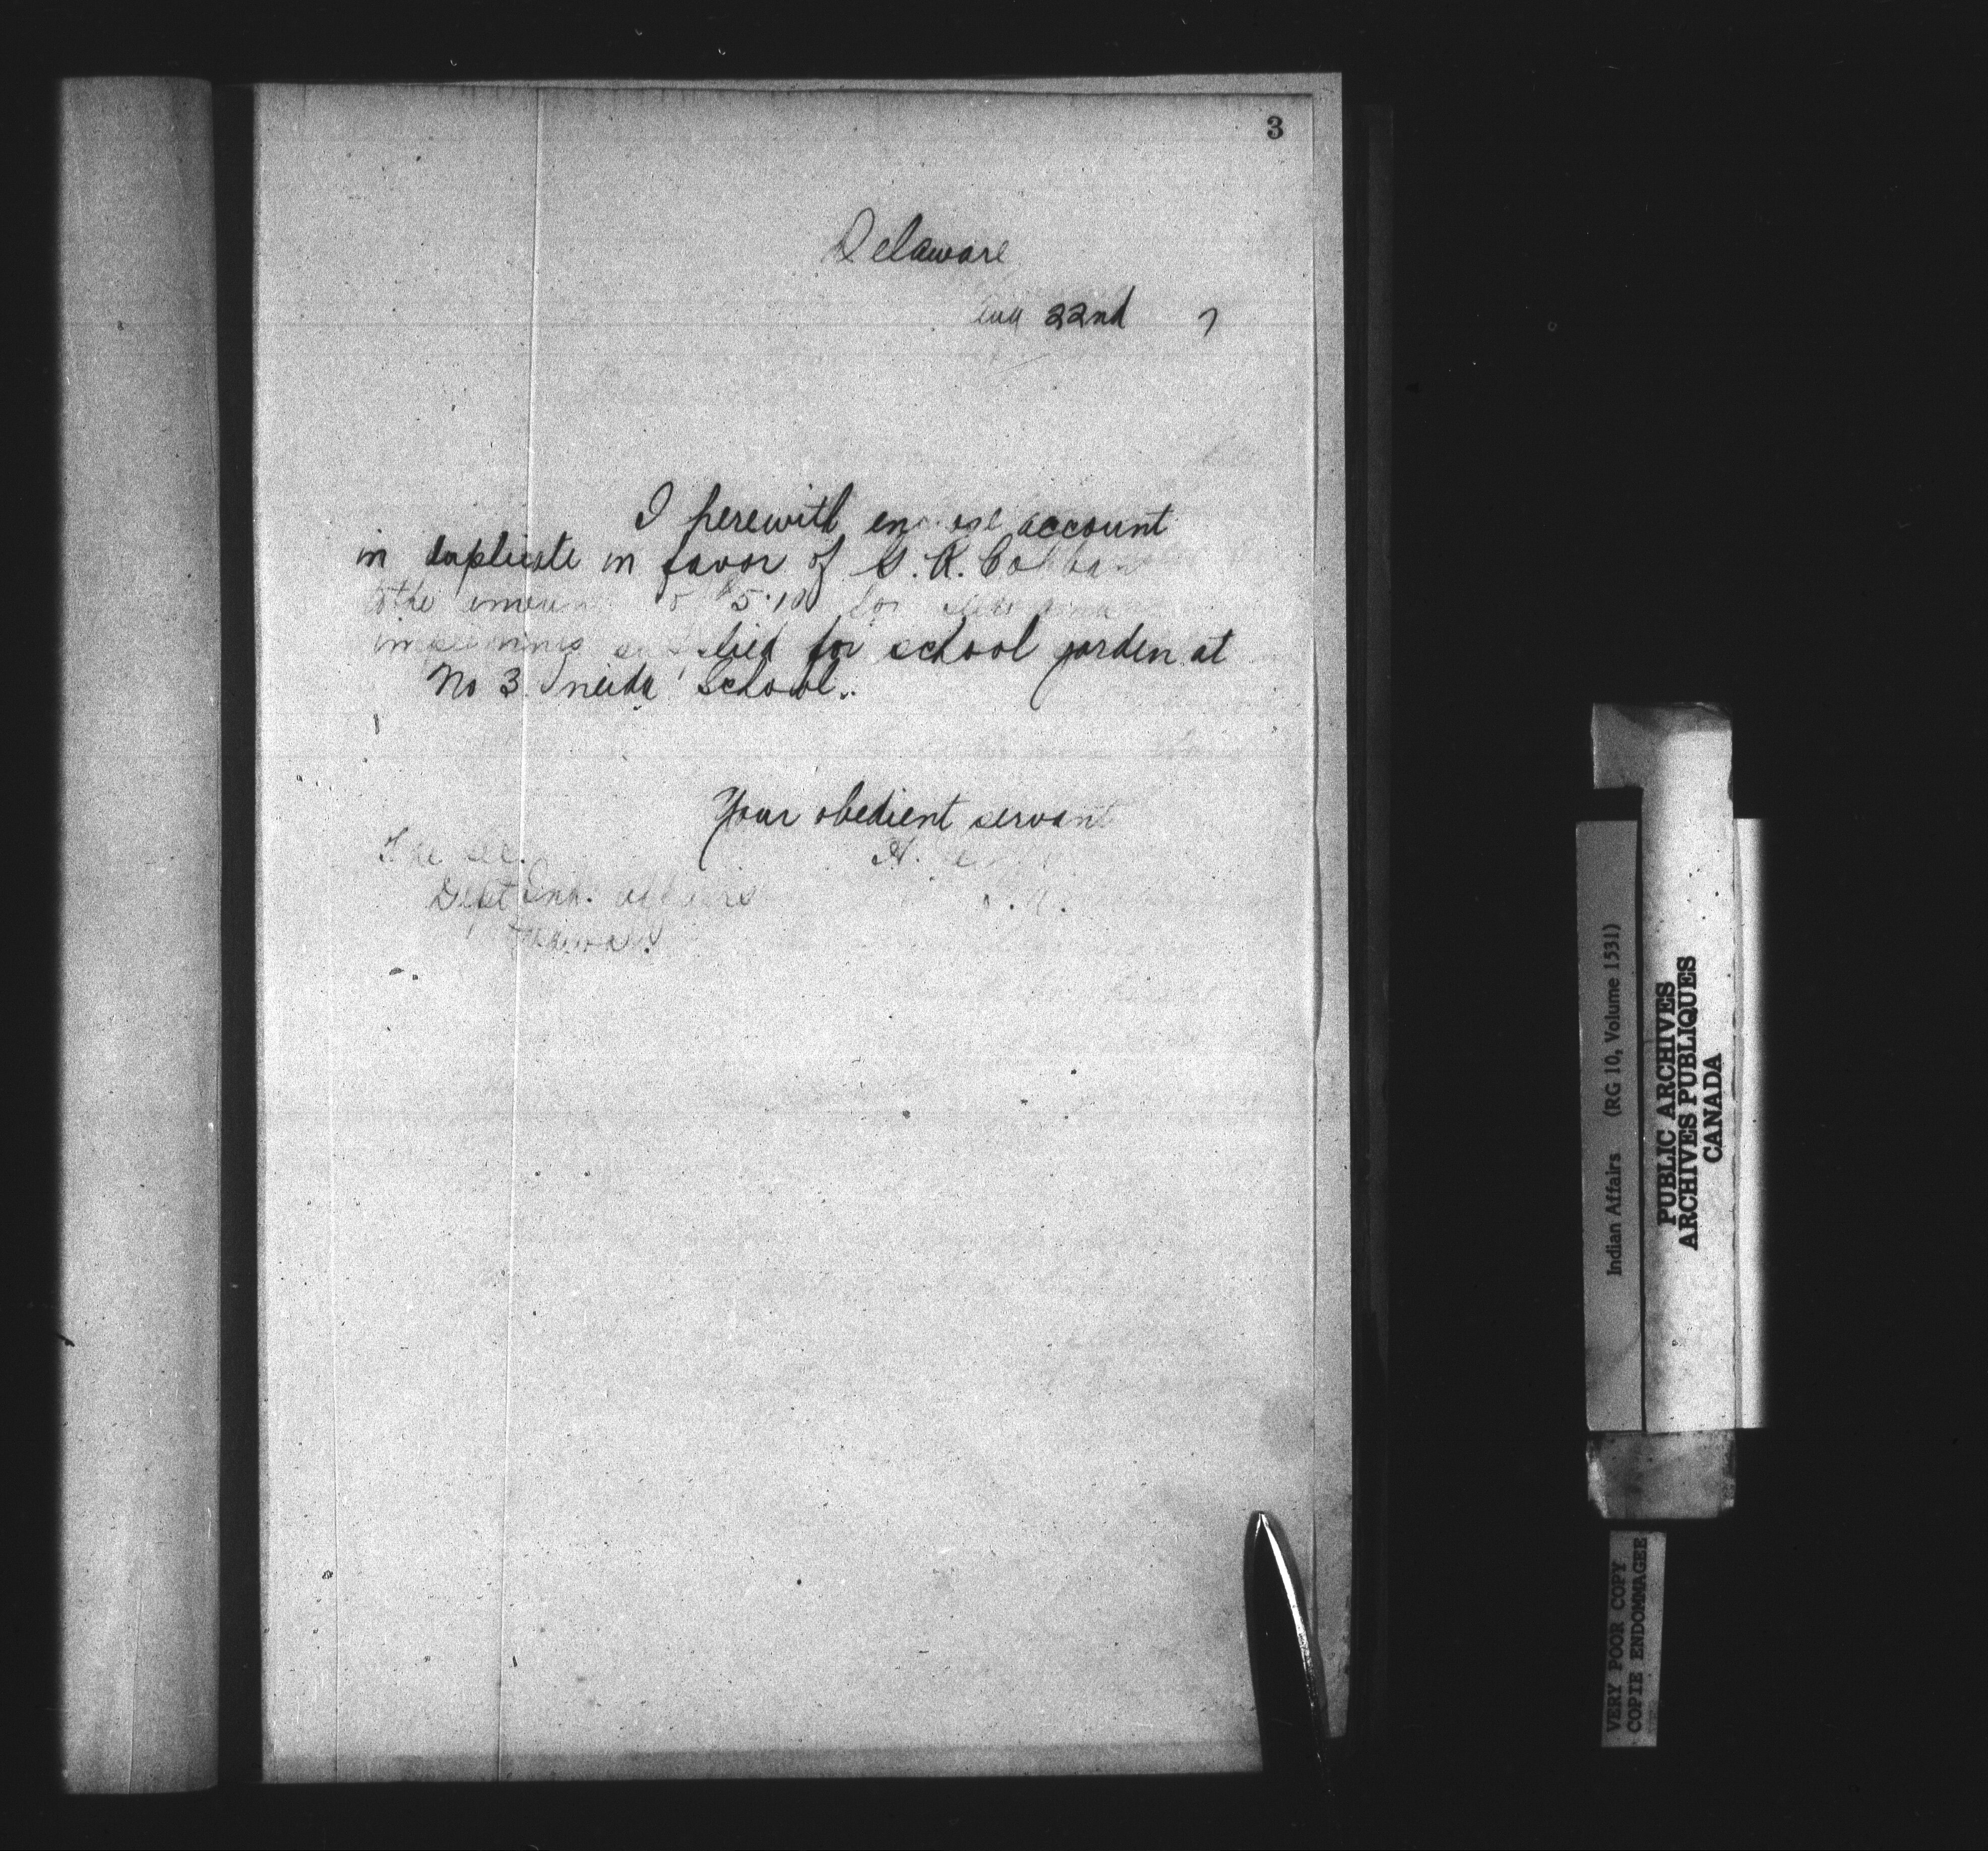 3
Delaware
Aug 22nd 7
I herewith enclose account
in duplicate in favor of S. R. Cobban
to the amount of $5.10 for
implements supplied for school garden at
No 3 Oneida School.
Your obedient servant
The Sec.
Dept Ind. Affairs
Ottawa.
Indian Affairs (RG 10, Volume 1531)
PUBLIC ARCHIVES
ARCHIVES PUBLIQUES
CANADA
VERY POOR COPY
COPIE ENDOMMAGEE